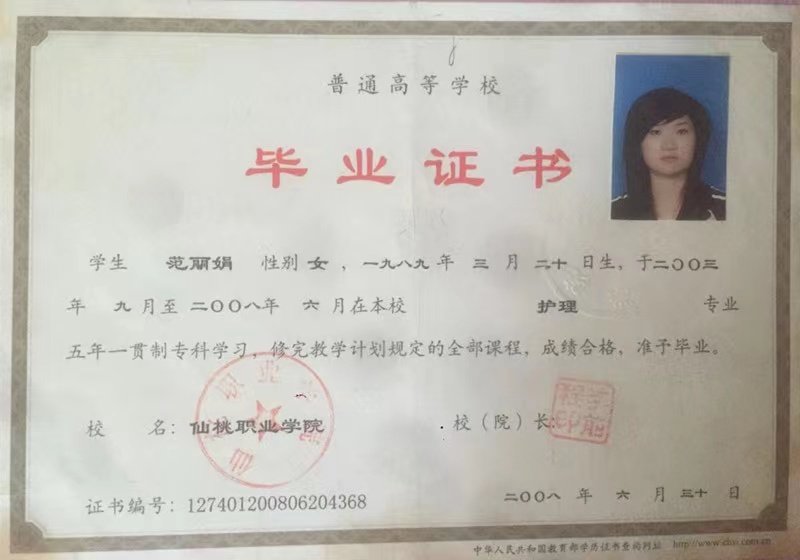 普通高等学校
毕业证书
学生 范丽娟 性别 女 ，一九八九 年 三 月 二十 日生，于二〇〇三
年 九 月至 二〇〇八年 六 月在本校 护理 专业
五年一贯制专科学习，修完教学计划规定的全部课程，成绩合格，准予毕业。
校 名：仙桃职业学院
校（院）长：
证书编号：127401200806204368
二〇〇八 年 六 月 三十 日
中华人民共和国教育部学历证书查询网址 http://www.chsi.com.cn